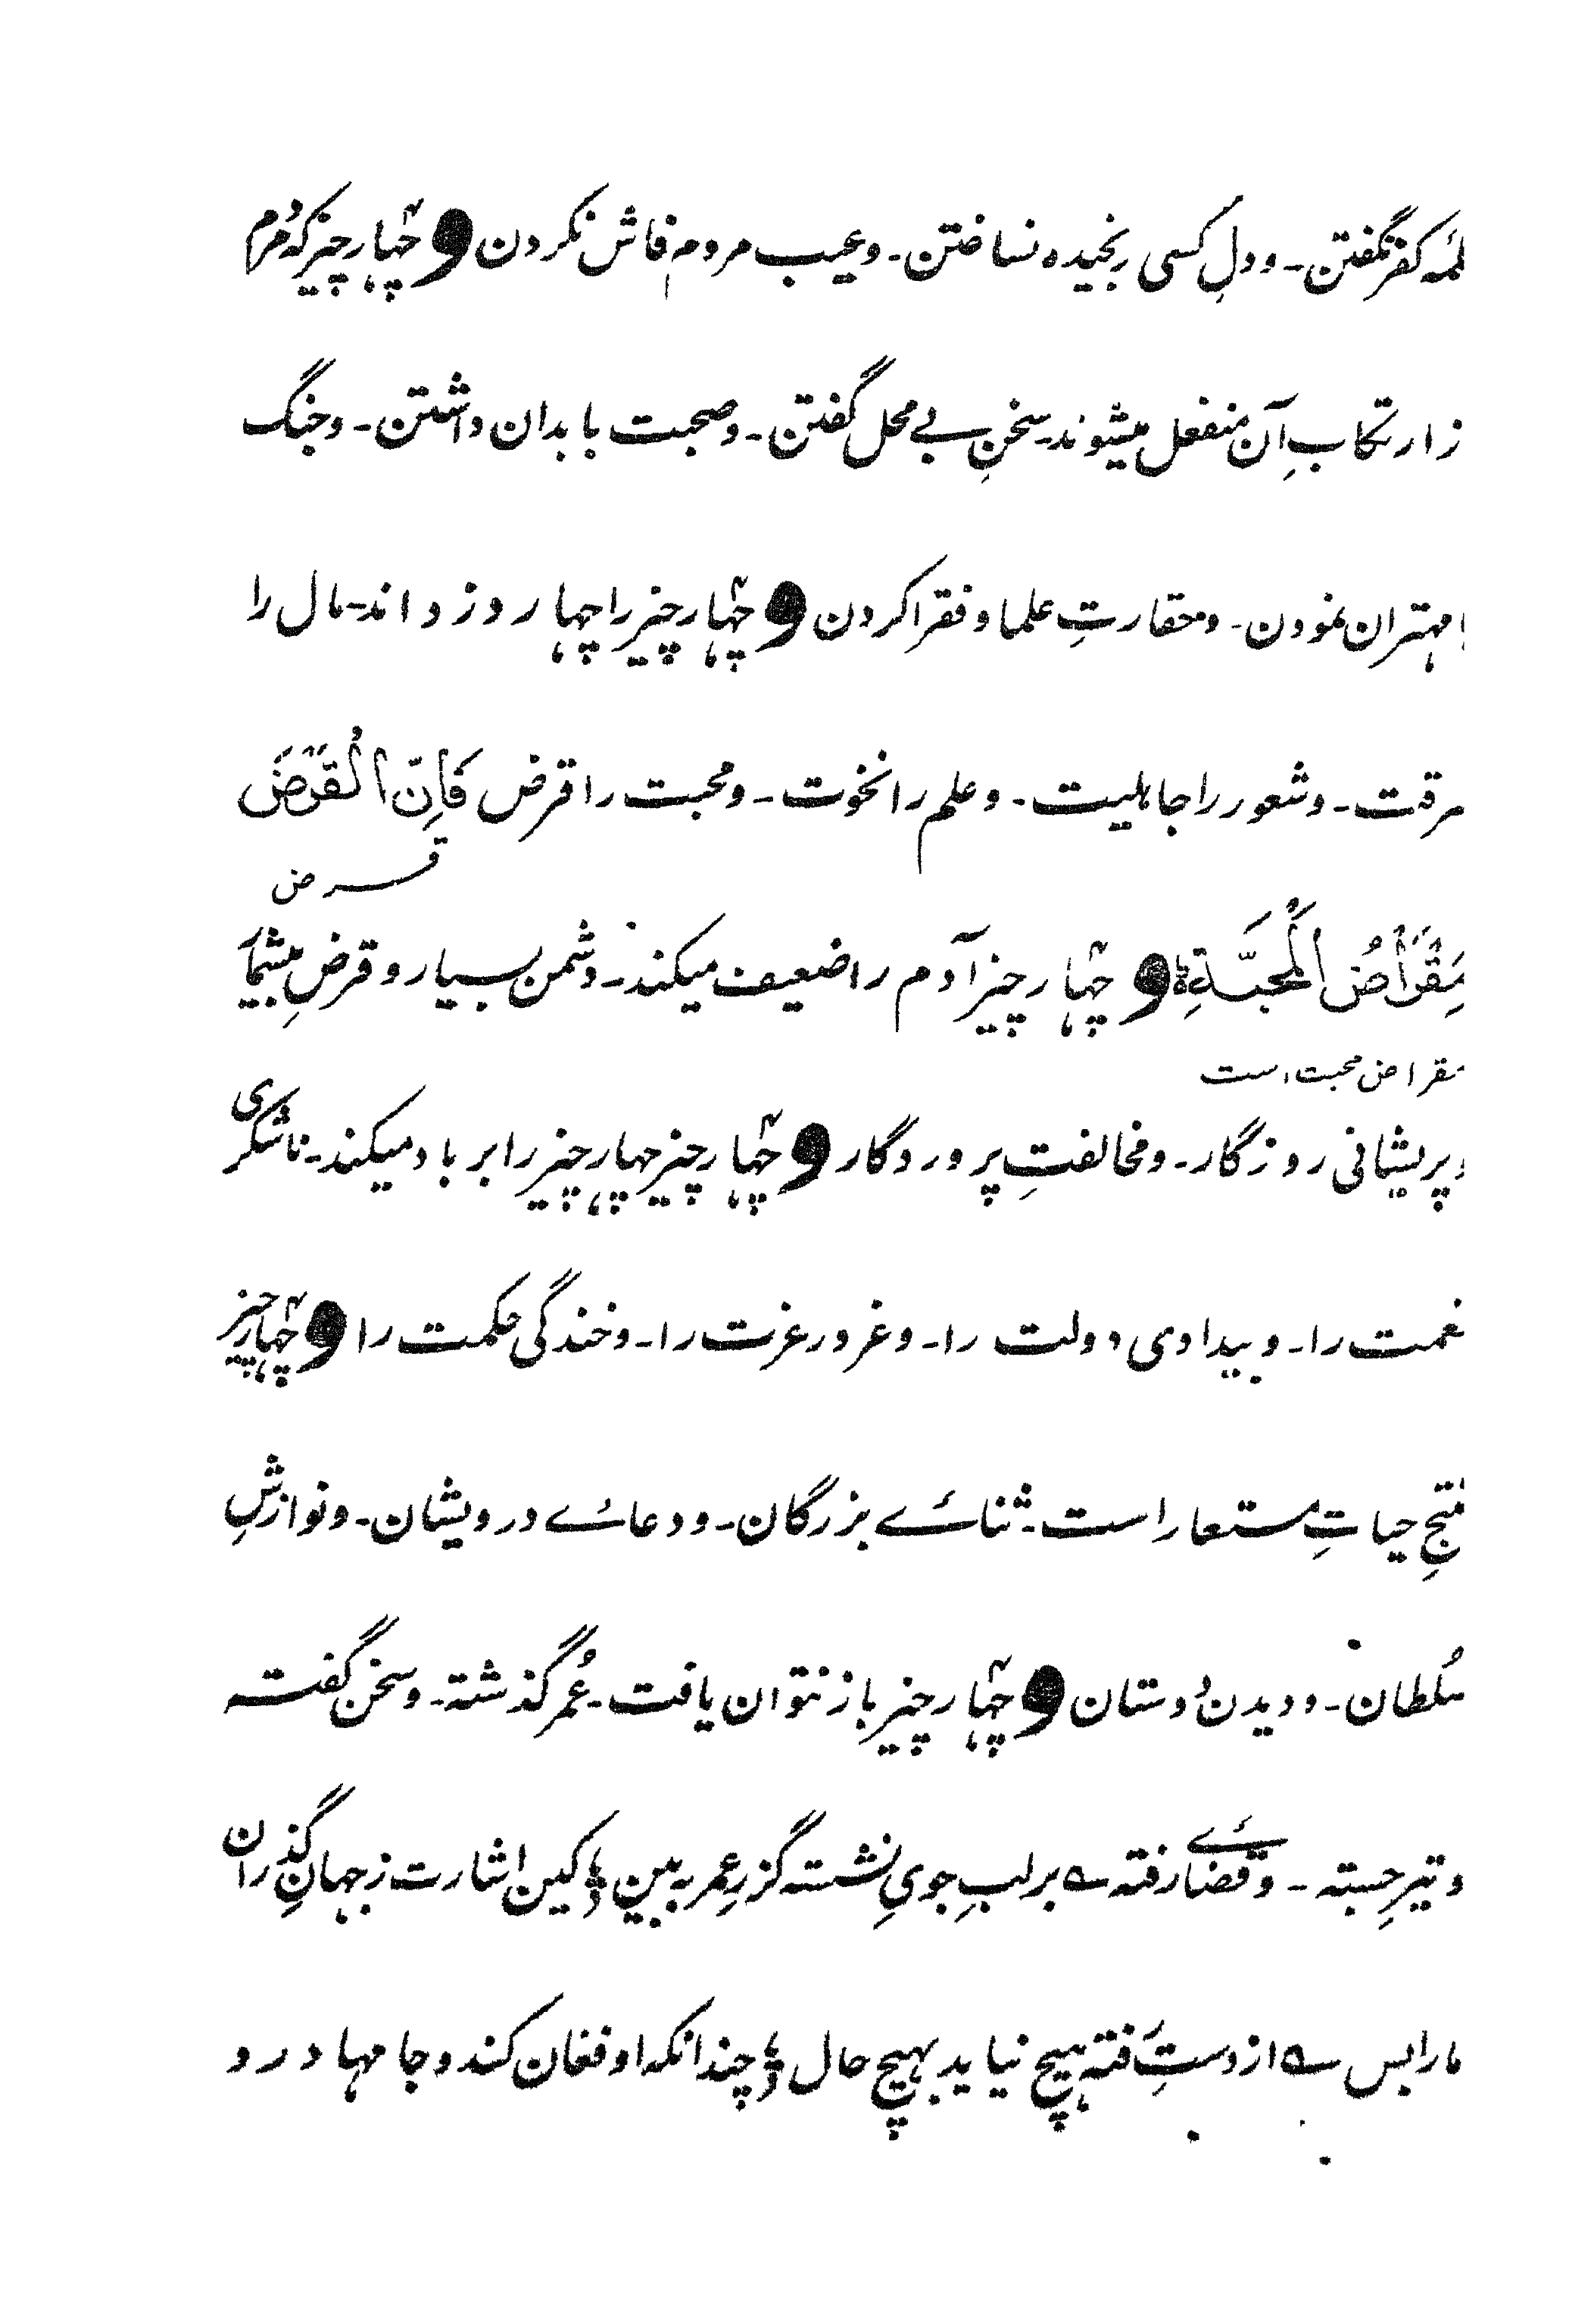 لمہ کفر نگفتن ۔ و دلِ کسی رنجیدہ نساختن ۔ و عیب مردم فاش نکردن و چہار چیز کہ مردُم
ز ارتکابِ آن منفعل میشوند ۔ سخنِ بے محل گفتن ۔ و صحبت با بدان داشتن ۔ و جنگ
با مہتران نمودن ۔ و حقارتِ علما و فقرا کردن و چہار چیز را چہار دزد اند ۔ مال را
سرقت ۔ و شعور را جاہلیت ۔ و علم را نخوت ۔ و محبت را قرض فَاِنَّ الْقَرْضَ
قرض
مِقْرَاضُ الْمَحَبَّةِ و چہار چیز آدم را ضعیف میکند ۔ دشمن بسیار و قرضِ بیشمار
مقراض محبت است
و پریشانی روزگار ۔ و مخالفتِ پروردگار و چہار چیز چہار چیز را برباد میکند ۔ ناشکری
نعمت را ۔ و بیدادی دولت را ۔ و غرور عزت را ۔ و خندگی حکمت را و چہار چیز
منتجِ حیاتِ مستعار است ۔ ثنائے بزرگان ۔ و دعائے درویشان ۔ و نوازشِ
سُلطان ۔ و دیدن دوستان و چہار چیز باز نتوان یافت ۔ عُمر گذشتہ ۔ و سخن گفتہ
و تیرِ جستہ ۔ و قضائے رفتہ ے بر لبِ جویِ نشستہ گزرِ عمر بہ بین کین اشارت ز جہانِ گذران
ما را بس ے از دستِ رفتہ ہیچ نیاید بہیچ حال چندانکہ او فغان کند و جامہا درو